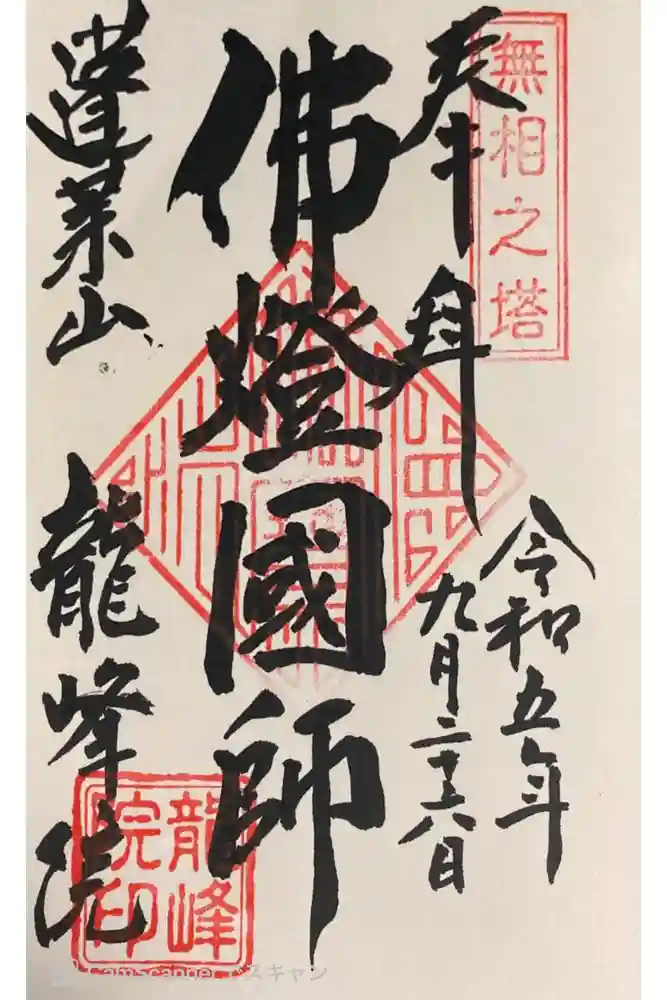 無相之塔
奉拝
令和五年
九月二十六日
佛燈國師
蓬莱山
龍峰院
龍峰
院印
CamScanner でスキャン